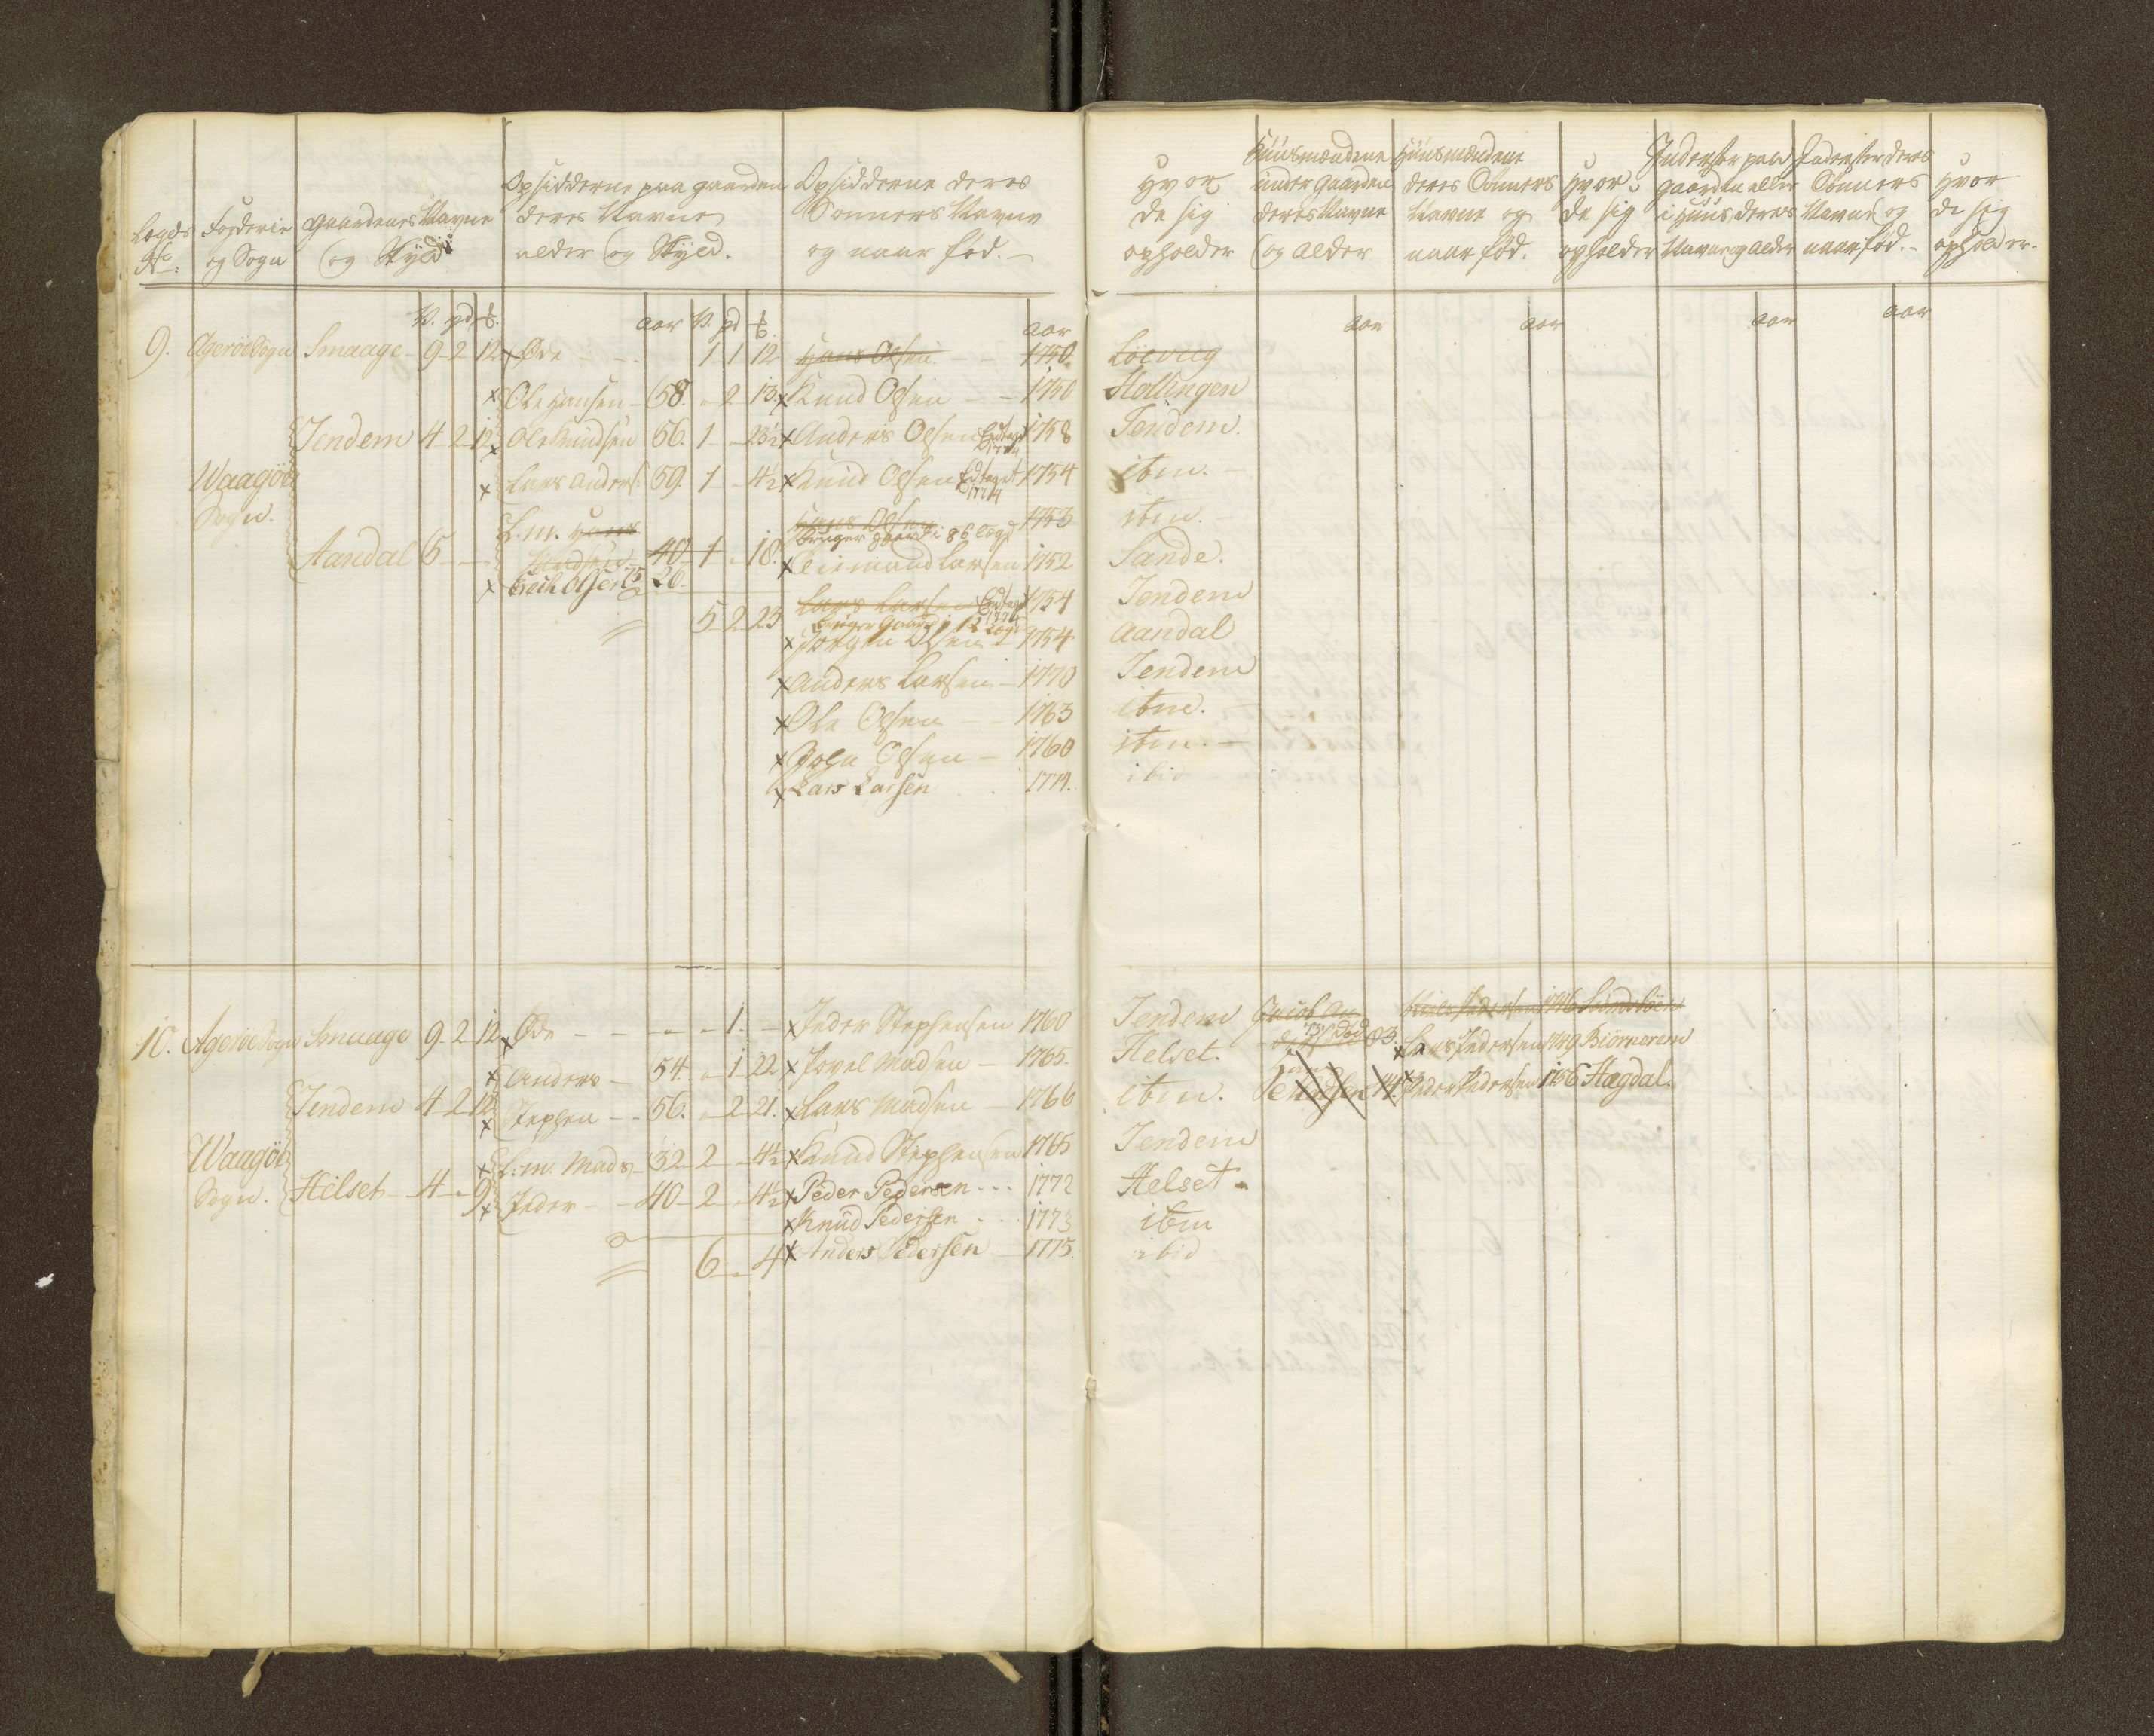 Lægds No: Fogderie og Sogn Gaardenes Navne og Skyld Opsidderne paa gaarden deres Navne alder og Skyld. Opsidderne deres Sønners Navne og naar fød. Hvor de sig opholder Huusmændene under gaarden deres Navne og Alder Huusmændene deres Sønners Navne og naar fød. Hvor de sig opholder Inderster paa gaarden eller i Huus deres Navne og Alder Inderster deres Sønners Navne og naar fød. Hvor de sig opholder.
V. pd ℔. aar V. pd ℔ aar aar aar aar aar
9. Agerøe Sogn Smaage 9 2 12 x Øde 1 1 12 Hans Olsen 1750 Løeviig
x Ole Hansen 58. 2 13 x Knud Olsen 1750 Hollingen
Jendem 4 2 12 x Ole Knudsen 56. 1 23½ x Anders Olsen 1774 1758 Jendem.
Waagøe Sogn. x Lars Anders: 59. 1 4½ x Knud Olsen 1774 1754 ibm.
L. m. Hans Hans Olsen 1753 ibm.
bruger gaard i 86 lægd
Aandal 5 40 1 18. x Eimund Larsen 1752 Sande.
x Erich Olsen 75 26
Lars Larsen 1774 1754 Jendem
5 2 23 bruger Gaard i 12 Lægd
x Jørgen Olsen 1754 Aandal
x Anders Larsen 1770 Jendem
x Ole Olsen 1763 ibm.
x John Olsen 1760 ibm.
x Lars Larsen 1774. ibid
10. Agerøe Sogn Smaage 9 2 12 x Øde 1. x Peder Stephensen 1760 Jendem Jacob An 1746 Sundsbøen
x Anders 54. 1 22 x Povel Madsen 1765. Helset. 73 død 63. x Lars Pedersen 1749 Biørnerem
Jendem 4 2 12 x Stephen 56. 2 21. x Lars Madsen 1766 ibm. 74. x Peder Pedersen 1756 Hagdal.
Waagøe Sogn. x L. m. Mads 32 2 4½ x Knud Stephensen 1765 Jendem
Helset 4 9 x Peder 40 2 4½ x Peder Pedersen 1772 Helset
x Knud Pedersen 1773 ibm
6 4 x Anders Pedersen 1775. ibid